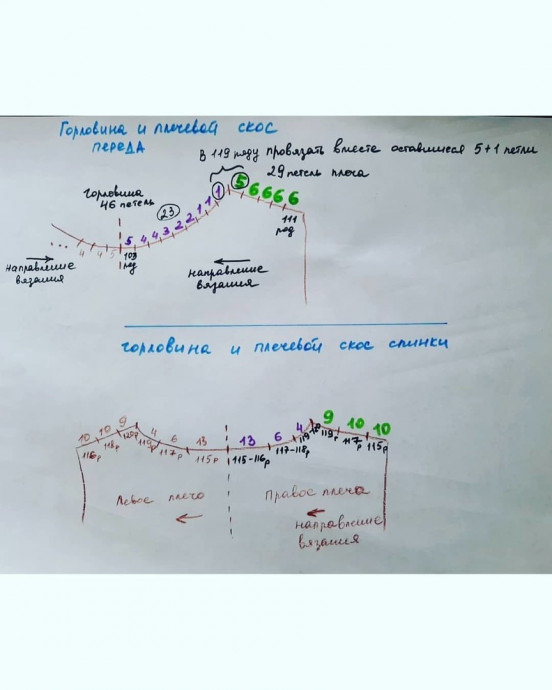 Горловина и плечевой скос
ПЕРЕДА
В 119 ряду провязать вместе оставшиеся 5+1 петли
29 петель плеча
горловина
46 петель
23
1 5 6 6 6 6
... 4 4 5 5 4 4 3 2 2 1 1 1
103
ряд
111
ряд
направление
вязания
направление
вязания
горловина и плечевой скос спинки
10 10 9 4 6 13 13 6 4 9 10 10
116р 118р 120р 119р 117р 115р 115-116р 117-118р 119 120 119р 117р 115р
Левое плечо
Правое плеча
направление
вязания